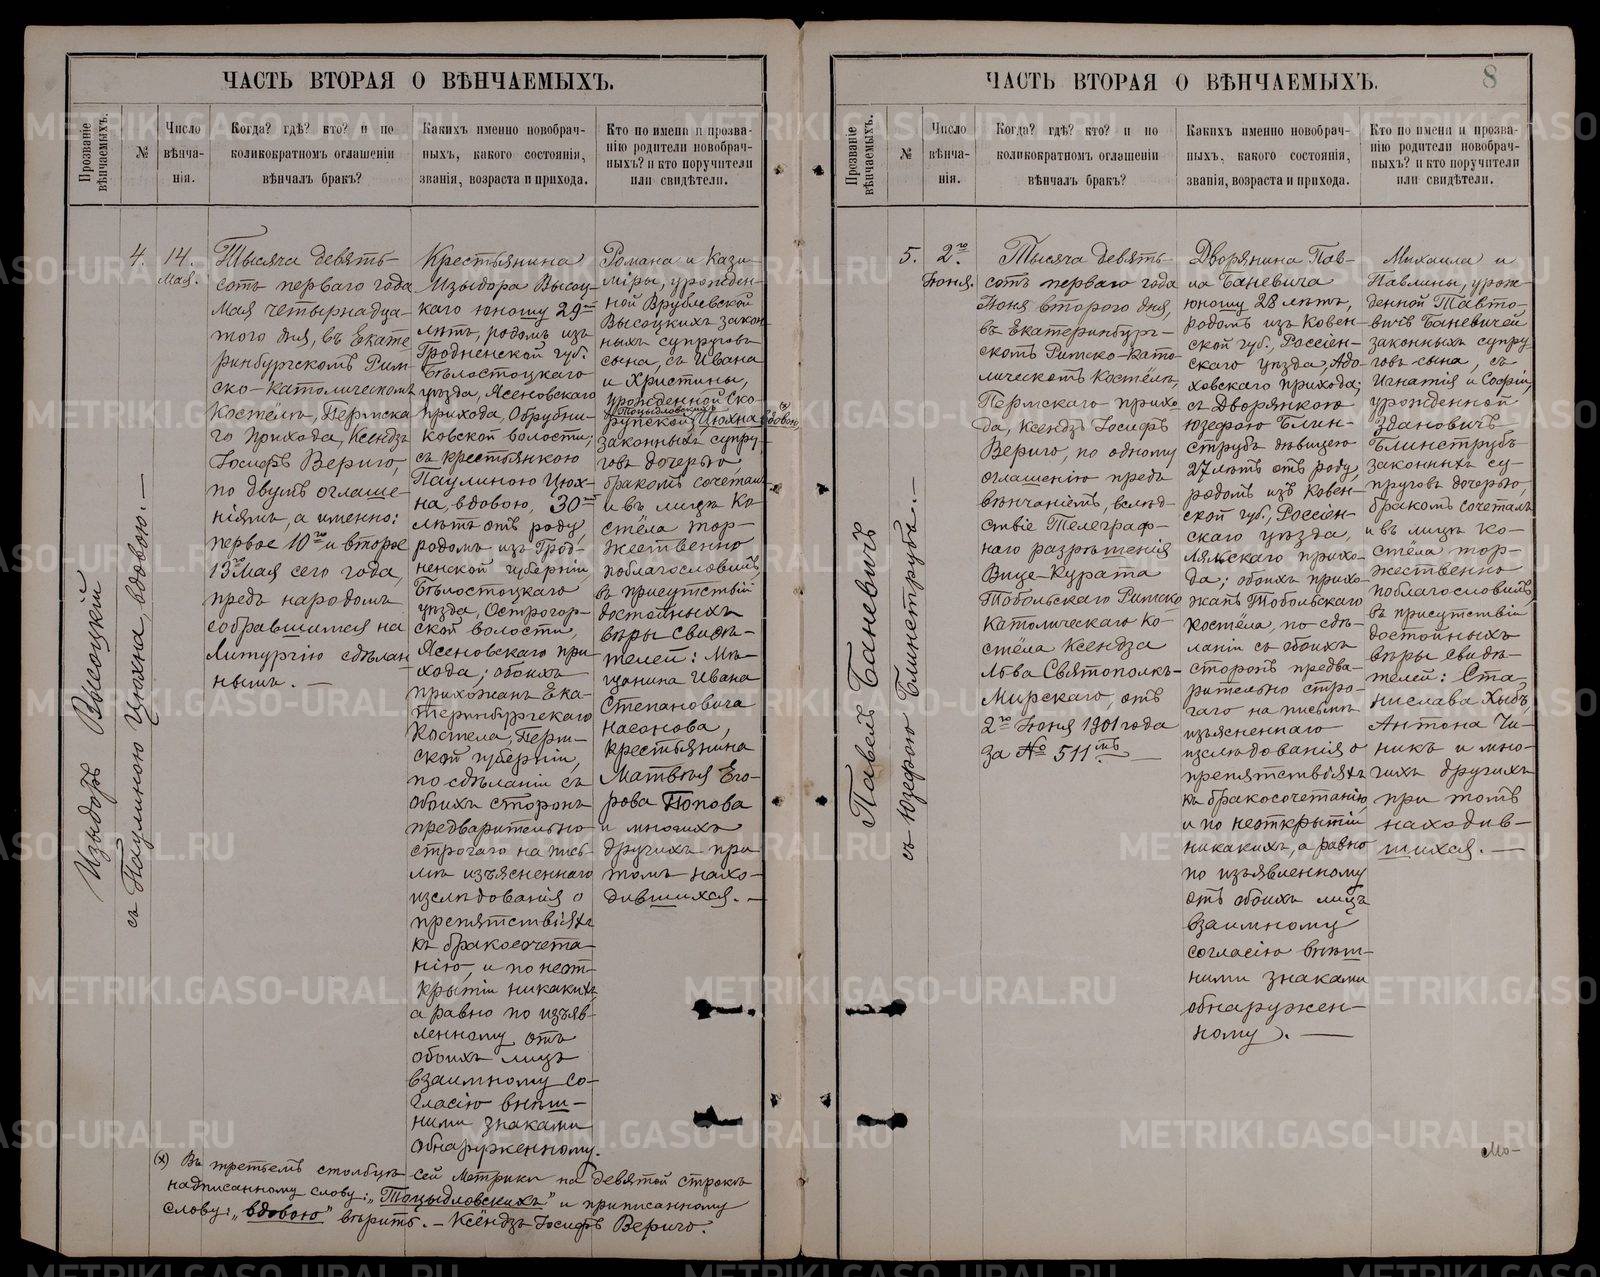 ЧАСТЬ ВТОРАЯ О ВѢНЧАЕМЫХЪ.
Прозваніе вѣнчаемыхъ.
№
Число
вѣнча-
нія.
Когда? гдѣ? кто? и по
коликократномъ оглашеніи
вѣнчалъ бракъ?
Какихъ именно новобрач-
ныхъ, какого состоянія,
званія, возраста и прихода.
Кто по имени и прозва-
нію родители новобрач-
ныхъ? и кто поручители
или свидѣтели.
Изыдоръ Высоцкій
съ Паулиною Цюхна, вдовою. —
4.
14.
Мая.
Тысяча девять-
сотъ перваго года
Мая четырнадца-
того дня, въ Екате-
ринбургскомъ Рим-
ско-католическомъ
Костёлѣ, Пермска-
го прихода, Ксендзъ
Іосифъ Вериго,
по двумъ оглаше-
ніямъ, а именно:
первое 10го и второе
13го Мая сего года,
предъ народомъ
собравшимся на
Литургію сдѣлан-
нымъ. —
Крестьянина
Изыдора Высоц-
каго юношу 29ти
лѣтъ, родомъ изъ
Гродненской губ.
Бѣлостоцкаго
уѣзда, Ясеновскаго
прихода, Обрубни-
ковской волости;
съ крестьянкою
Паулиною Цюх-
на, вдовою, 30ти
лѣтъ отъ роду,
родомъ изъ Грод-
ненской губерніи
Бѣлостоцкаго
уѣзда, Острогор-
ской волости,
Ясеновскаго при-
хода; обоихъ
прихожанъ Ека-
теринбургскаго
Костёла, Перм-
ской губерніи,
по сдѣланіи съ
обоихъ сторонъ
предварительно
строгаго на пись-
мѣ изъясненнаго
изслѣдованія о
препятствіяхъ
къ бракосочета-
нію, и по неот-
крытіи никакихъ,
а равно по изъяв-
ленному отъ
обоихъ лицъ
взаимному со-
гласію внѣш-
ними знаками
обнаруженному.
Романа и Кази-
міры, урожден-
ной Врублевской
Высоцкихъ закон-
ныхъ супруговъ
сына, съ Ивана
и Христины,
урожденной Ско-
Тоцыдловскихъ (x)
рупской Цюхна вдовою,
законныхъ супру-
говъ дочерью,
бракомъ сочеталъ
и въ лицѣ Ко-
стёла тор-
жественно
поблагословилъ,
въ присутствіи
достойныхъ
вѣры свидѣ-
телей: Мѣ-
щанина Ивана
Степановича
Насонова,
крестьянина
Матвѣя Его-
рова Попова
и многихъ
другихъ при
томъ нахо-
дившихся. —
(x) Въ третьемъ столбцѣ сей Метрики на девятой строкѣ
надписанному слову: „Тоцыдловскихъ" и приписанному
слову: „вдовою" вѣрить. — Ксёндзъ Іосифъ Вериго.
ЧАСТЬ ВТОРАЯ О ВѢНЧАЕМЫХЪ.
8
Прозваніе вѣнчаемыхъ.
№
Число
вѣнча-
нія.
Когда? гдѣ? кто? и по
коликократномъ оглашеніи
вѣнчалъ бракъ?
Какихъ именно новобрач-
ныхъ, какого состоянія,
званія, возраста и прихода.
Кто по имени и прозва-
нію родители новобрач-
ныхъ? и кто поручители
или свидѣтели.
Павелъ Баневичъ
съ Юзефою Блинструбъ. —
5.
2го
Іюня.
Тысяча девять-
сотъ перваго года
Іюня второго дня,
въ Екатеринбург-
скомъ Римско-като-
лическомъ Костёлѣ,
Пермскаго прихо-
да, Ксендзъ Іосифъ
Вериго, по одному
оглашенію предъ
вѣнчаніемъ, вслѣд-
ствіе Телеграф-
наго разрѣшенія
Вице-Курата
Тобольскаго Римско
католическаго Ко-
стёла Ксендза
Льва Святополкъ-
Мирскаго, отъ
2го Іюня 1901 года
за № 511мъ —
Дворянина Пав-
ла Баневича
юношу 28 лѣтъ,
родомъ изъ Ковен-
ской губ., Россіен-
скаго уѣзда, Адо-
ховскаго прихода;
съ Дворянкою
Юзефою Блин-
струбъ дѣвицею
27 лѣтъ отъ роду,
родомъ изъ Ковен-
ской губ., Россіен-
скаго уѣзда,
прихо-
да; обоихъ прихо-
жанъ Тобольскаго
Костёла, по сдѣ-
ланіи съ обоихъ
сторонъ предва-
рительно стро-
гаго на письмѣ
изъясненнаго
изслѣдованія о
препятствіяхъ
къ бракосочетанію,
и по неоткрытіи
никакихъ, а равно
по изъявленному
отъ обоихъ лицъ
взаимному
согласію внѣш-
ними знаками
обнаружен-
ному. —
Михаила и
Павлины, урож-
денной Тавто-
вичъ Баневичей
законныхъ супру-
говъ сына, съ
Игнатія и Софіи,
урожденной
Здановичъ
Блинструбъ
законныхъ су-
пруговъ дочерью,
бракомъ сочеталъ
и въ лицѣ Ко-
стёла тор-
жественно
поблагословилъ,
въ присутствіи
достойныхъ
вѣры свидѣ-
телей: Ста-
нислава Хыбъ,
Антона Чи-
никъ и мно-
гихъ другихъ
при томъ
находив-
шихся. —
Мо-
METRIKI.GASO-URAL.RU